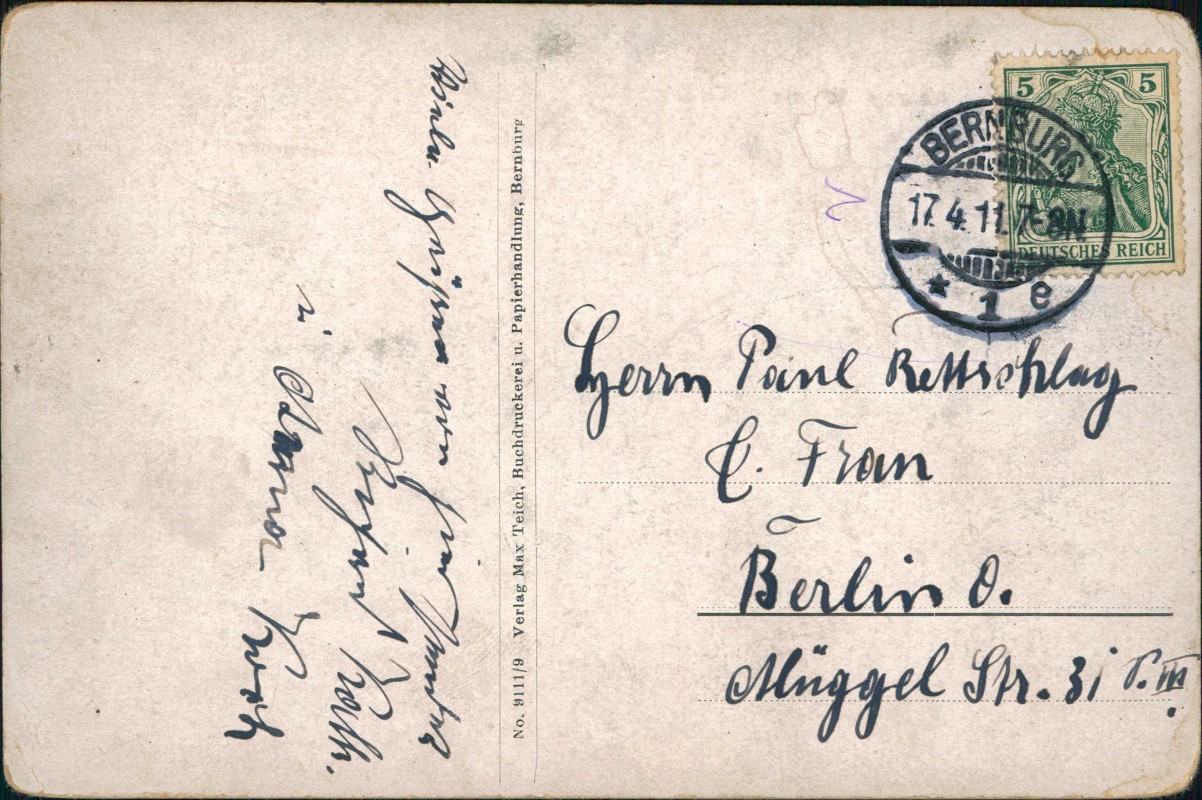 Viele Grüße von
Koch.
u. Anna Koch
No. 9111/9 Verlag Max Teich, Buchdruckerei u. Papierhandlung, Bernburg
5 5
DEUTSCHES REICH
BERNBURG
17.4.11.7-8N.
* 1 e
Herrn Paul Rettschlag
C. Fran
Berlin O.
Müggel Str. 31 P. III